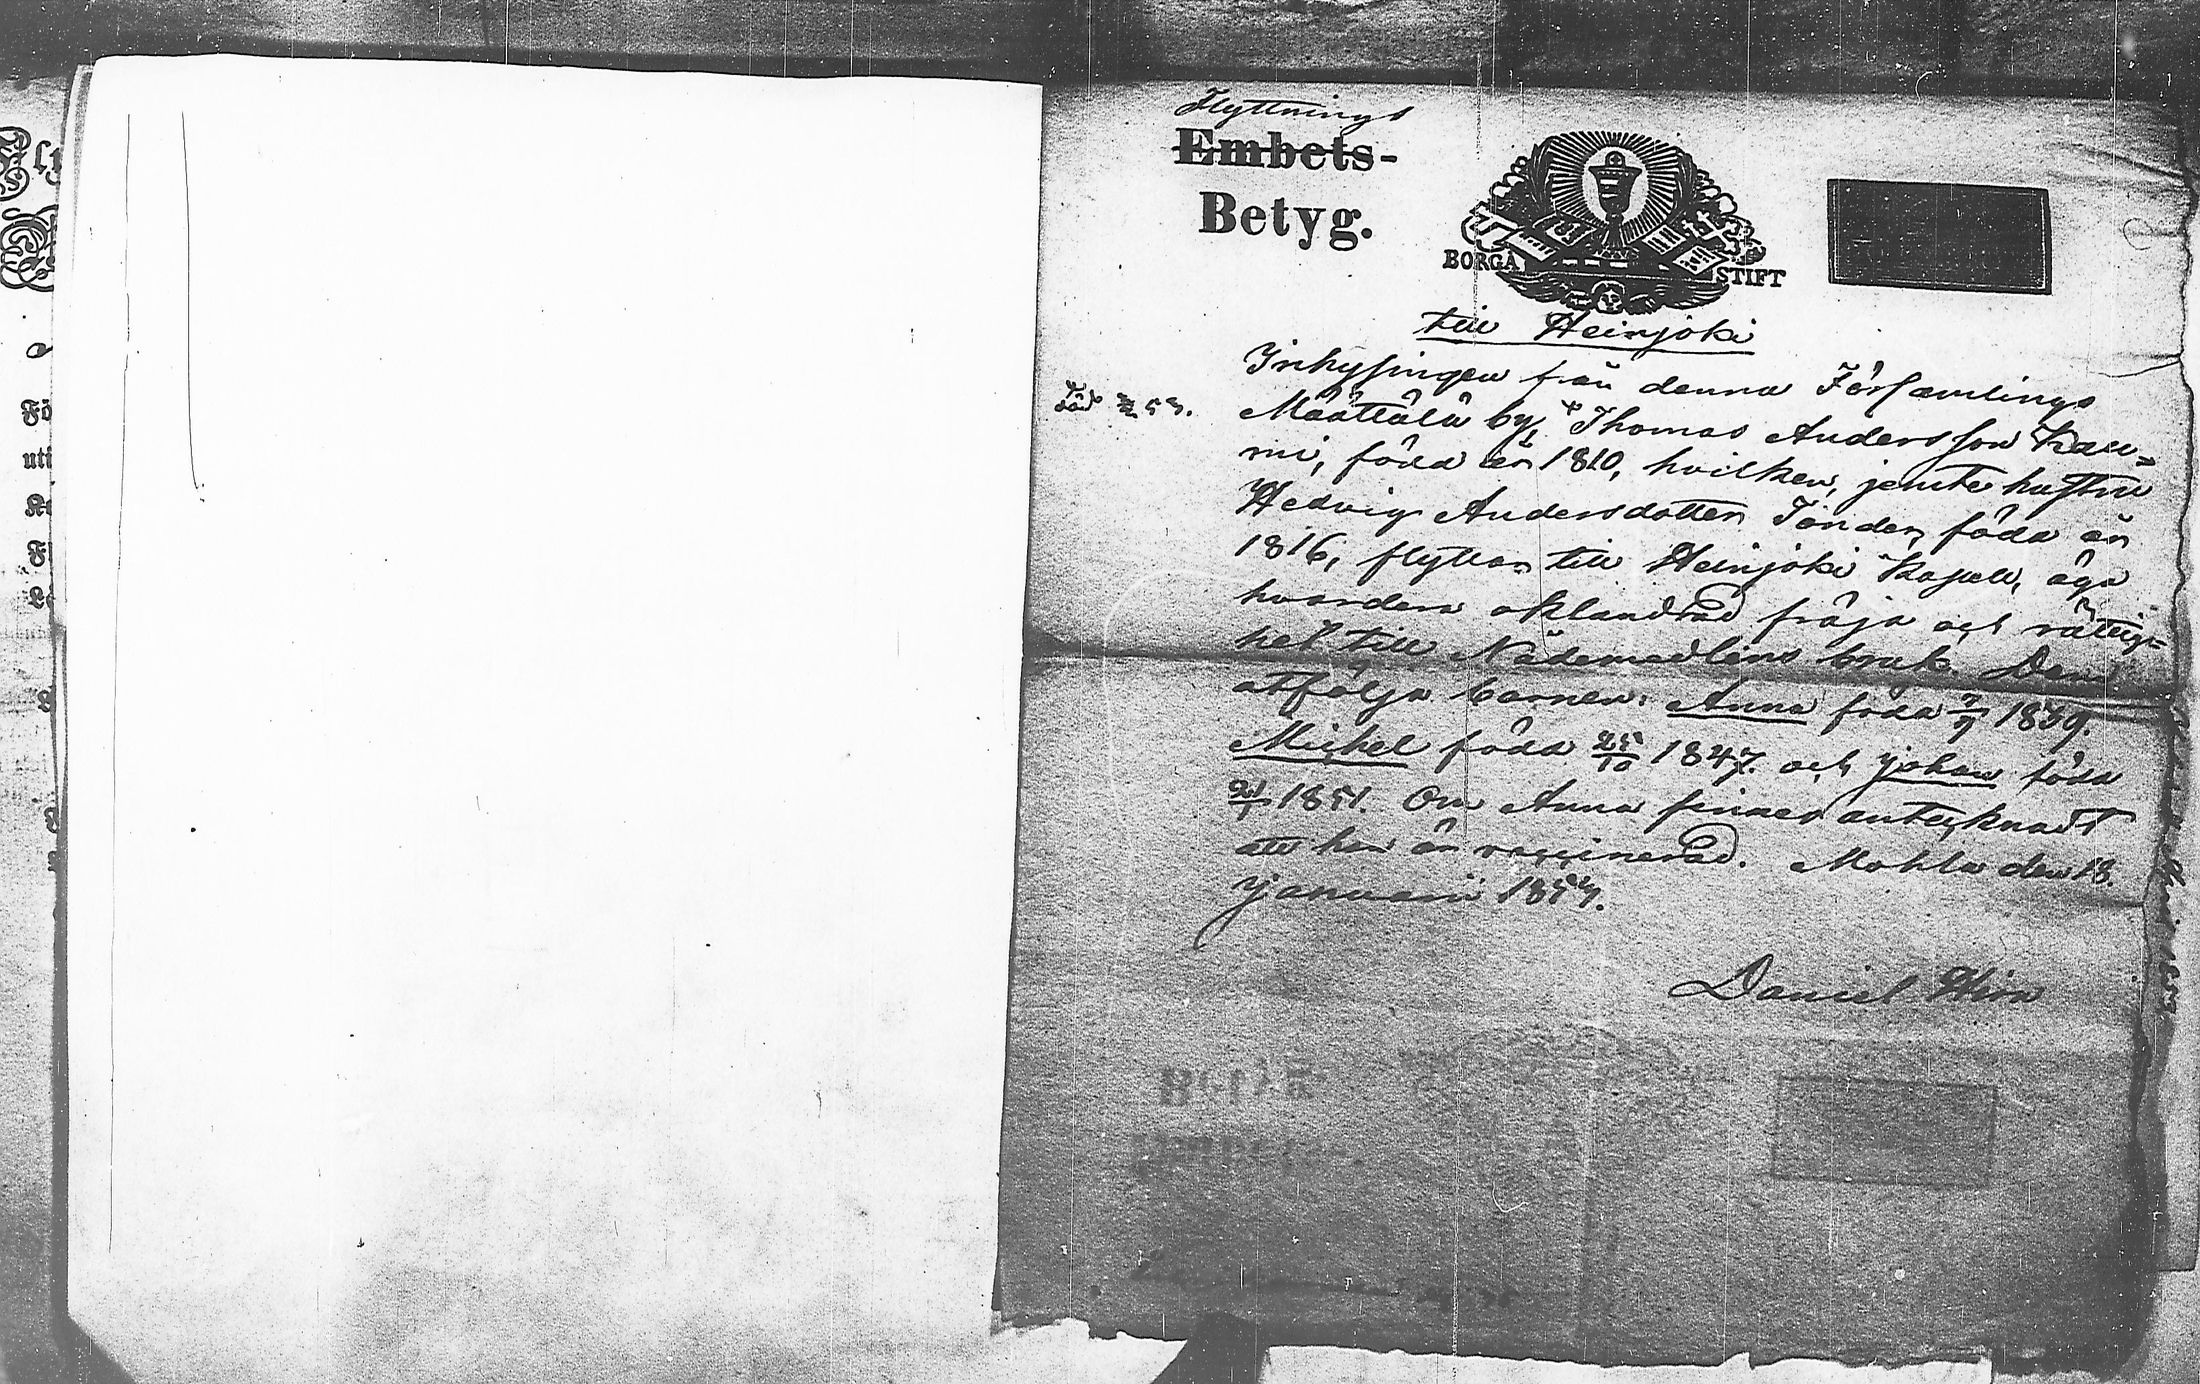 Flyttnings
Embets-
Betyg.
BORGÅ STIFT
till Heinjoki
Inhysingen från denna Församlings
Määttälä by, Thomas Andersson Kau=
mi, född år 1810, hvilken, jemte hustru
Hedvig Andersdotter född år
1816, flyttar till Heinjoki Kapell, äga
hvardera oklandrad fräjd och rättig=
het till Nådemedlens bruk. Dem
åtfölja barnen: Anna född 7/7 1839.
Michel född 25/10 1847. och Johan född
1851. Om Anna finnes anteknadt
att hon är vaccinerad. Mohla den 18.
Januarii 1853.
Daniel Hirn